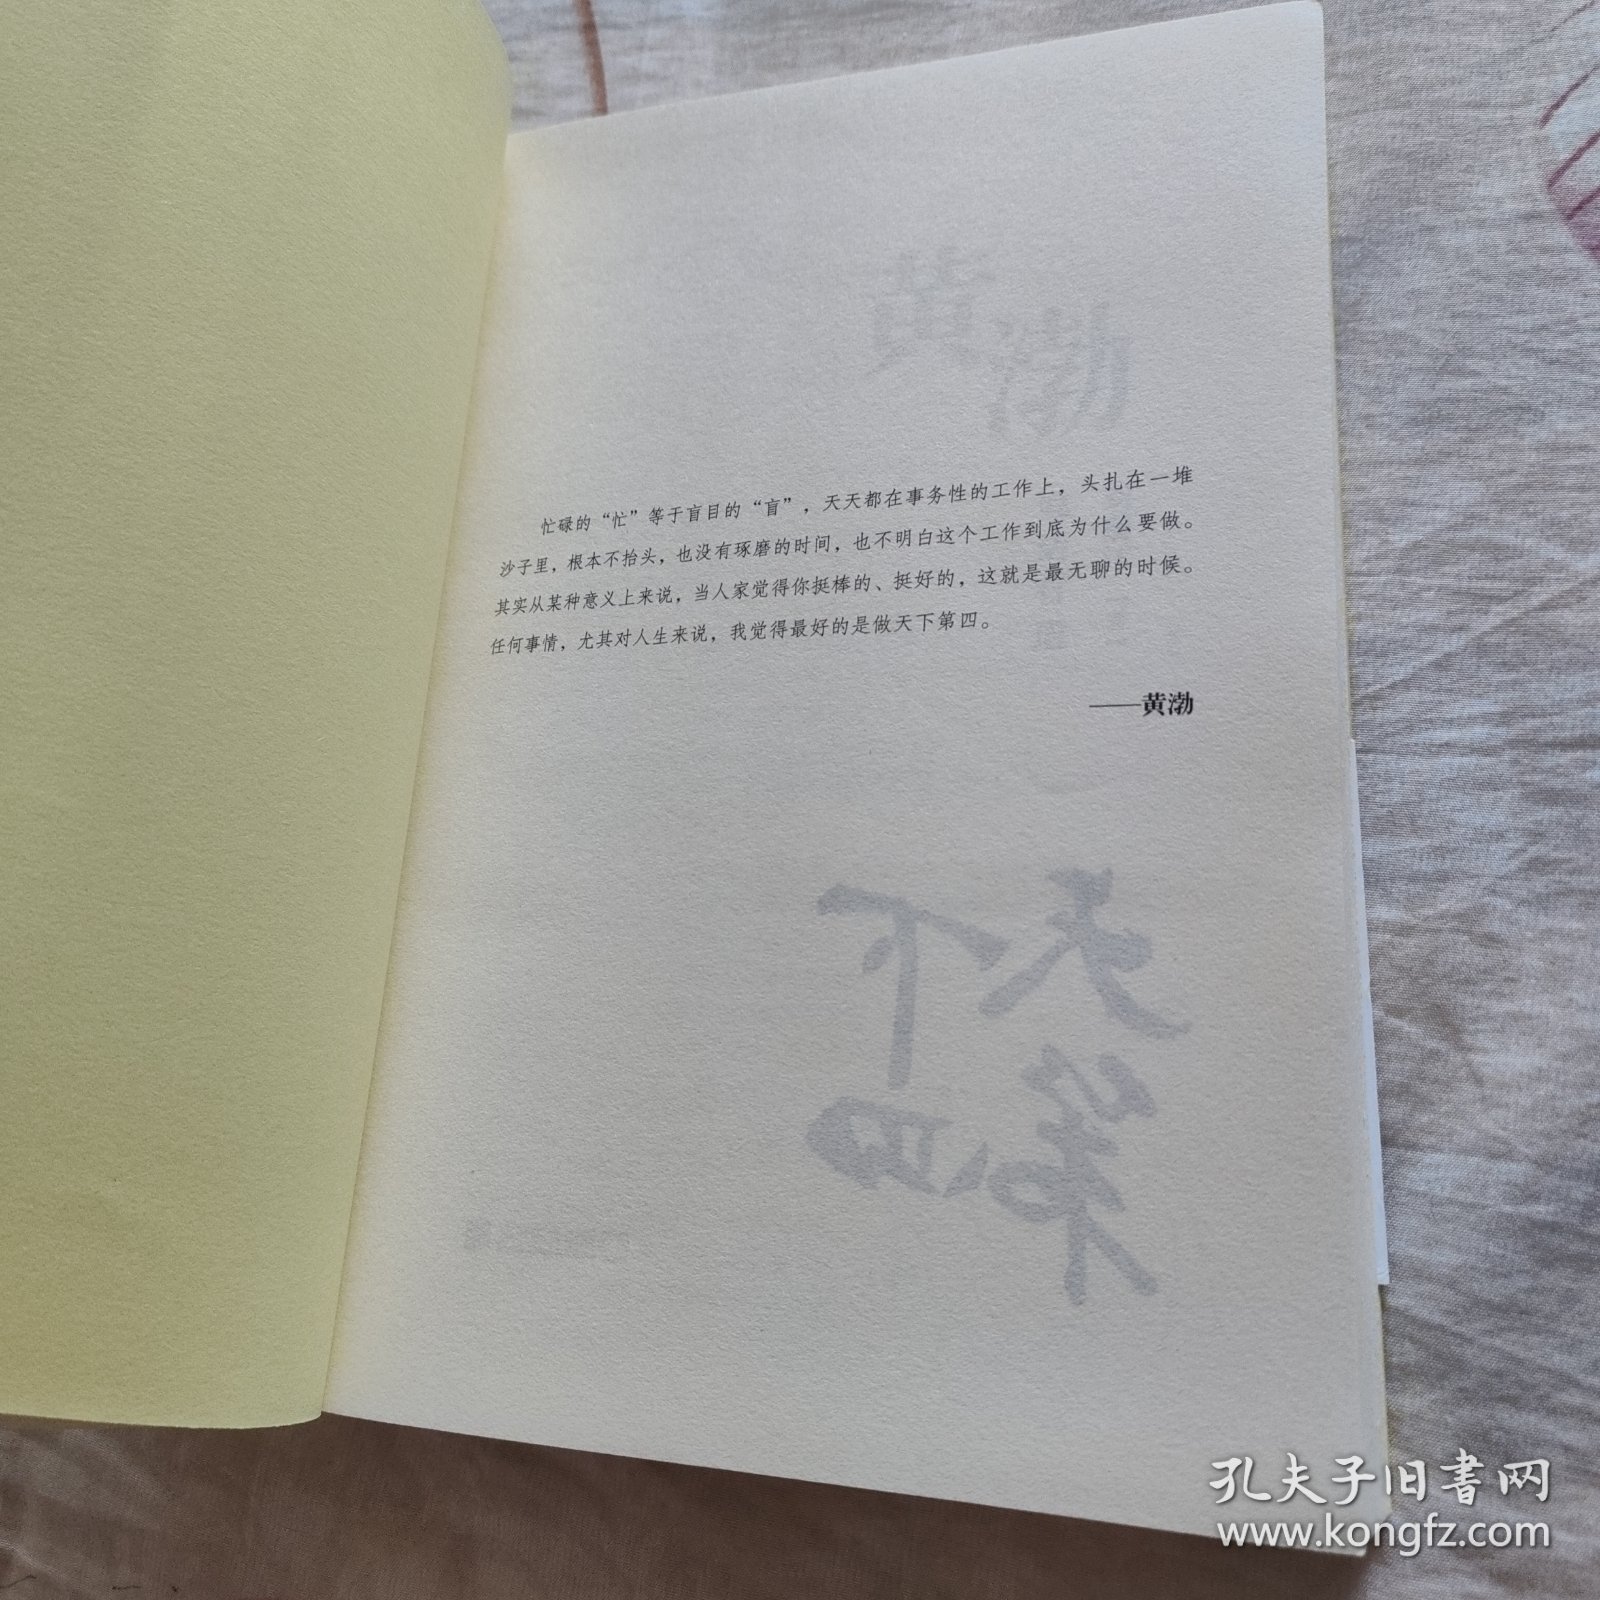 黄渤
忙碌的“忙”等于盲目的“盲”，天天都在事务性的工作上，头扎在一堆
沙子里，根本不抬头，也没有琢磨的时间，也不明白这个工作到底为什么要做。
其实从某种意义上来说，当人家觉得你挺棒的、挺好的，这就是最无聊的时候。
任何事情，尤其对人生来说，我觉得最好的是做天下第四。
——黄渤
天下
第四
孔夫子旧书网
www.kongfz.com